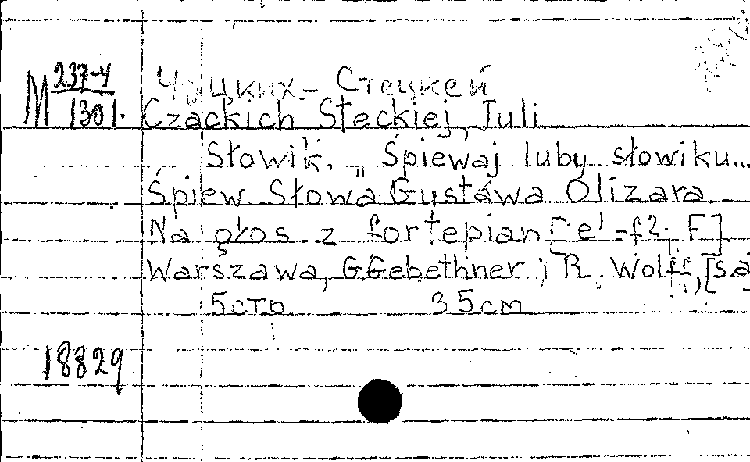 М 237-4
1301.
Чацких-Стецкей
Czackich Steckiej, Juli
Słowik. „Śpiewaj luby słowiku...
Śpiew Słowa Gustawa Olizara
Na głos z fortepian [e¹-f2. F]
Warszawa, G. Gebethner i R. Wolff, [s.a
5 стр. 35 cm
18829